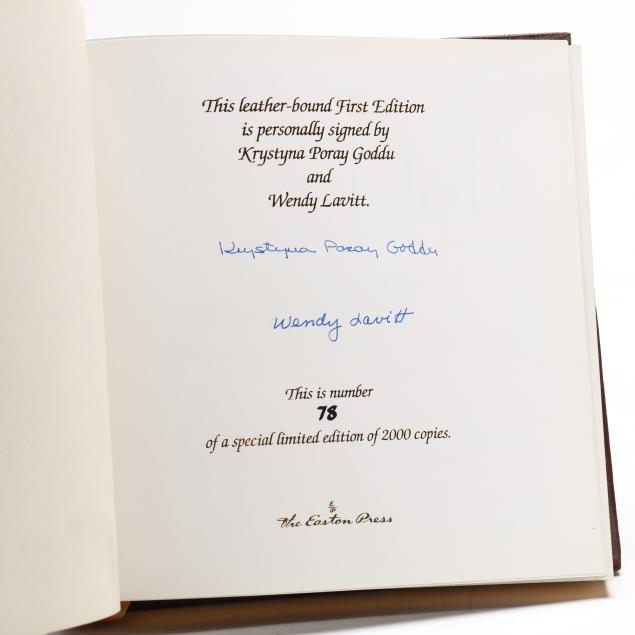 This leather-bound First Edition
is personally signed by
Krystyna Poray Goddu
and
Wendy Lavitt.
Krystyna Poray Goddu
Wendy Lavitt
This is number
78
of a special limited edition of 2000 copies.
E
P
The Easton Press